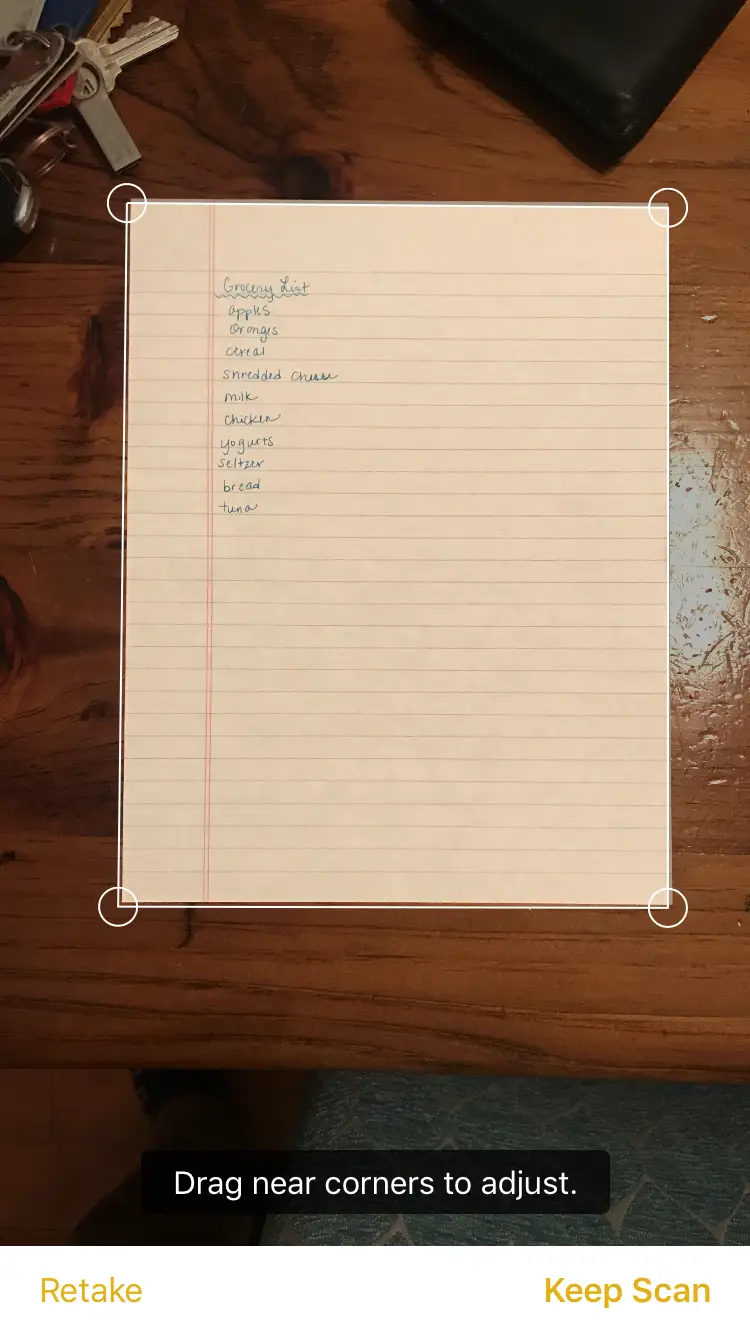 Grocery List
apples
Oranges
cereal
shredded cheese
milk
chicken
yogurts
seltzer
bread
tuna
Drag near corners to adjust.
Retake Keep Scan